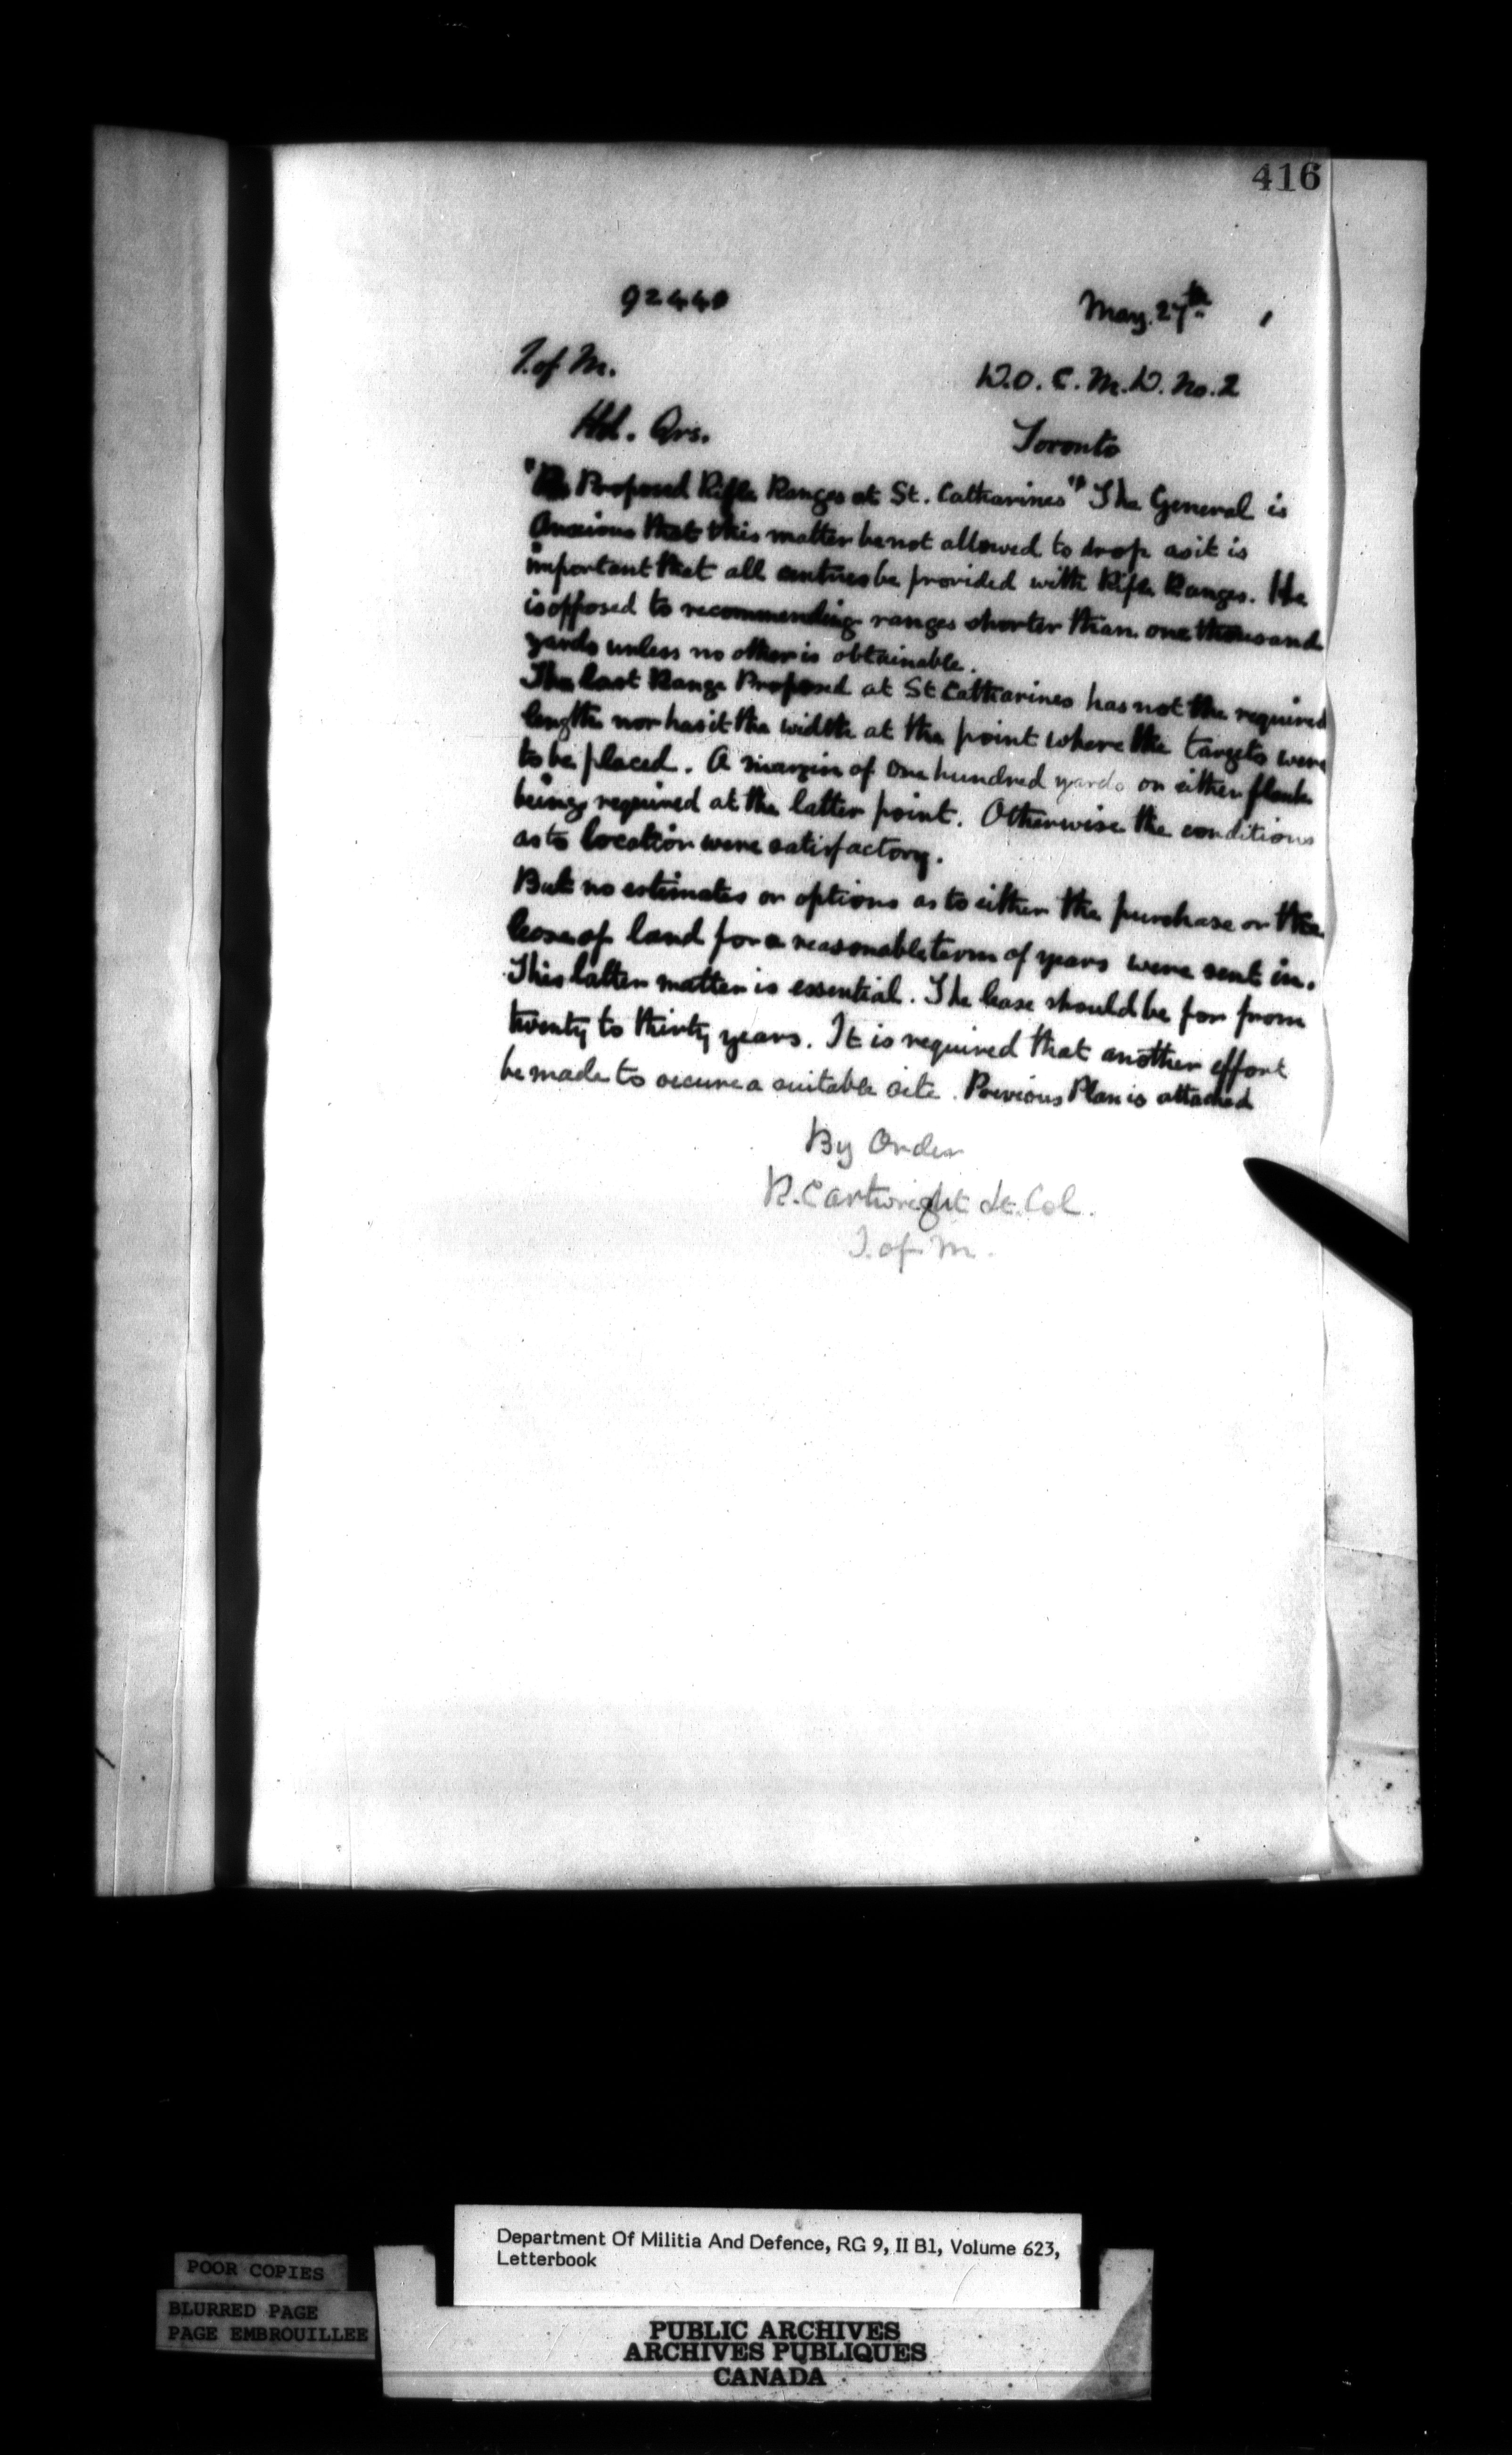 416
92440
May. 27th. 1
I. of M.
D.O.C.M.D. No. 2
Hd. Qrs.
Toronto
"Re Proposed Rifle Ranges at St. Catharines" The General is
anxious that this matter be not allowed to drop as it is
important that all centres be provided with Rifle Ranges. He
is opposed to recommending ranges shorter than one thousand
yards unless no other is obtainable.
The last Range Proposed at St Catharines has not the required
length nor has it the width at the point where the targets were
to be placed. A margin of one hundred yards on either flank
being required at the latter point. Otherwise the conditions
as to location were satisfactory.
But no estimates or options as to either the purchase or the
lease of land for a reasonable term of years were sent in.
This latter matter is essential. The lease should be for from
twenty to thirty years. It is required that another effort
be made to secure a suitable site. Previous Plan is attached
By Order
R. Cartwright Lt. Col.
I. of M.
Department Of Militia And Defence, RG 9, II B1, Volume 623,
Letterbook
POOR COPIES
BLURRED PAGE
PAGE EMBROUILLEE
PUBLIC ARCHIVES
ARCHIVES PUBLIQUES
CANADA